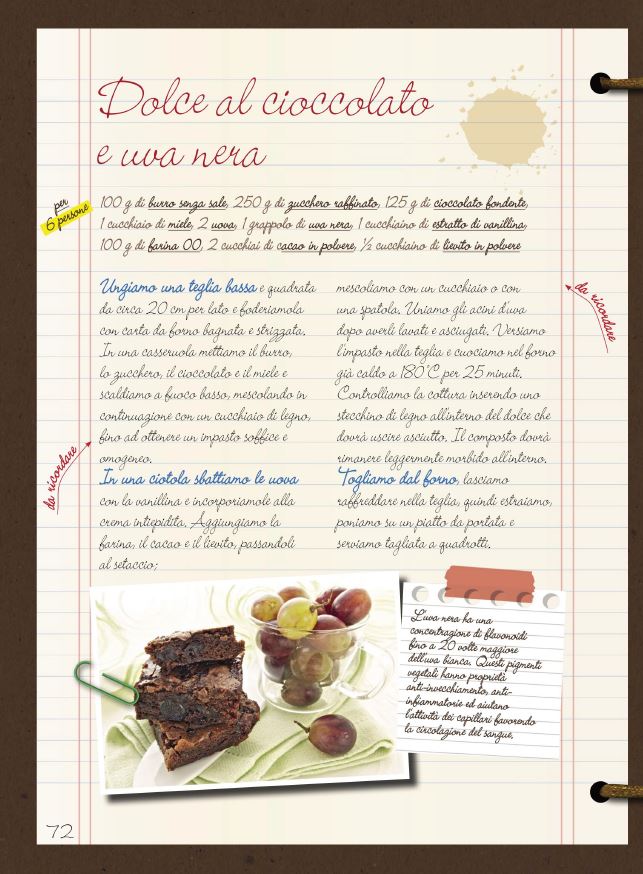 Dolce al cioccolato
e uva nera
per
6 persone
100 g di burro senza sale, 250 g di zucchero raffinato, 125 g di cioccolato fondente,
1 cucchiaio di miele, 2 uova, 1 grappolo di uva nera, 1 cucchiaino di estratto di vanillina,
100 g di farina 00, 2 cucchiai di cacao in polvere, ½ cucchiaino di lievito in polvere
Ungiamo una teglia bassa e quadrata
da circa 20 cm per lato e foderiamola
con carta da forno bagnata e strizzata.
In una casseruola mettiamo il burro,
lo zucchero, il cioccolato e il miele e
scaldiamo a fuoco basso, mescolando in
continuazione con un cucchiaio di legno,
fino ad ottenere un impasto soffice e
omogeneo.
In una ciotola sbattiamo le uova
con la vanillina e incorporiamole alla
crema intiepidita. Aggiungiamo la
farina, il cacao e il lievito, passandoli
al setaccio;
da ricordare
mescoliamo con un cucchiaio o con
una spatola. Uniamo gli acini d'uva
dopo averli lavati e asciugati. Versiamo
l'impasto nella teglia e cuociamo nel forno
già caldo a 180°C per 25 minuti.
Controlliamo la cottura inserendo uno
stecchino di legno all'interno del dolce che
dovrà uscire asciutto. Il composto dovrà
rimanere leggermente morbido all'interno.
Togliamo dal forno, lasciamo
raffreddare nella teglia, quindi estraiamo,
poniamo su un piatto da portata e
serviamo tagliata a quadrotti.
da ricordare
L'uva nera ha una
concentrazione di flavonoidi
fino a 20 volte maggiore
dell'uva bianca. Questi pigmenti
vegetali hanno proprietà
anti-invecchiamento, anti-
infiammatorie ed aiutano
l'attività dei capillari favorendo
la circolazione del sangue.
72